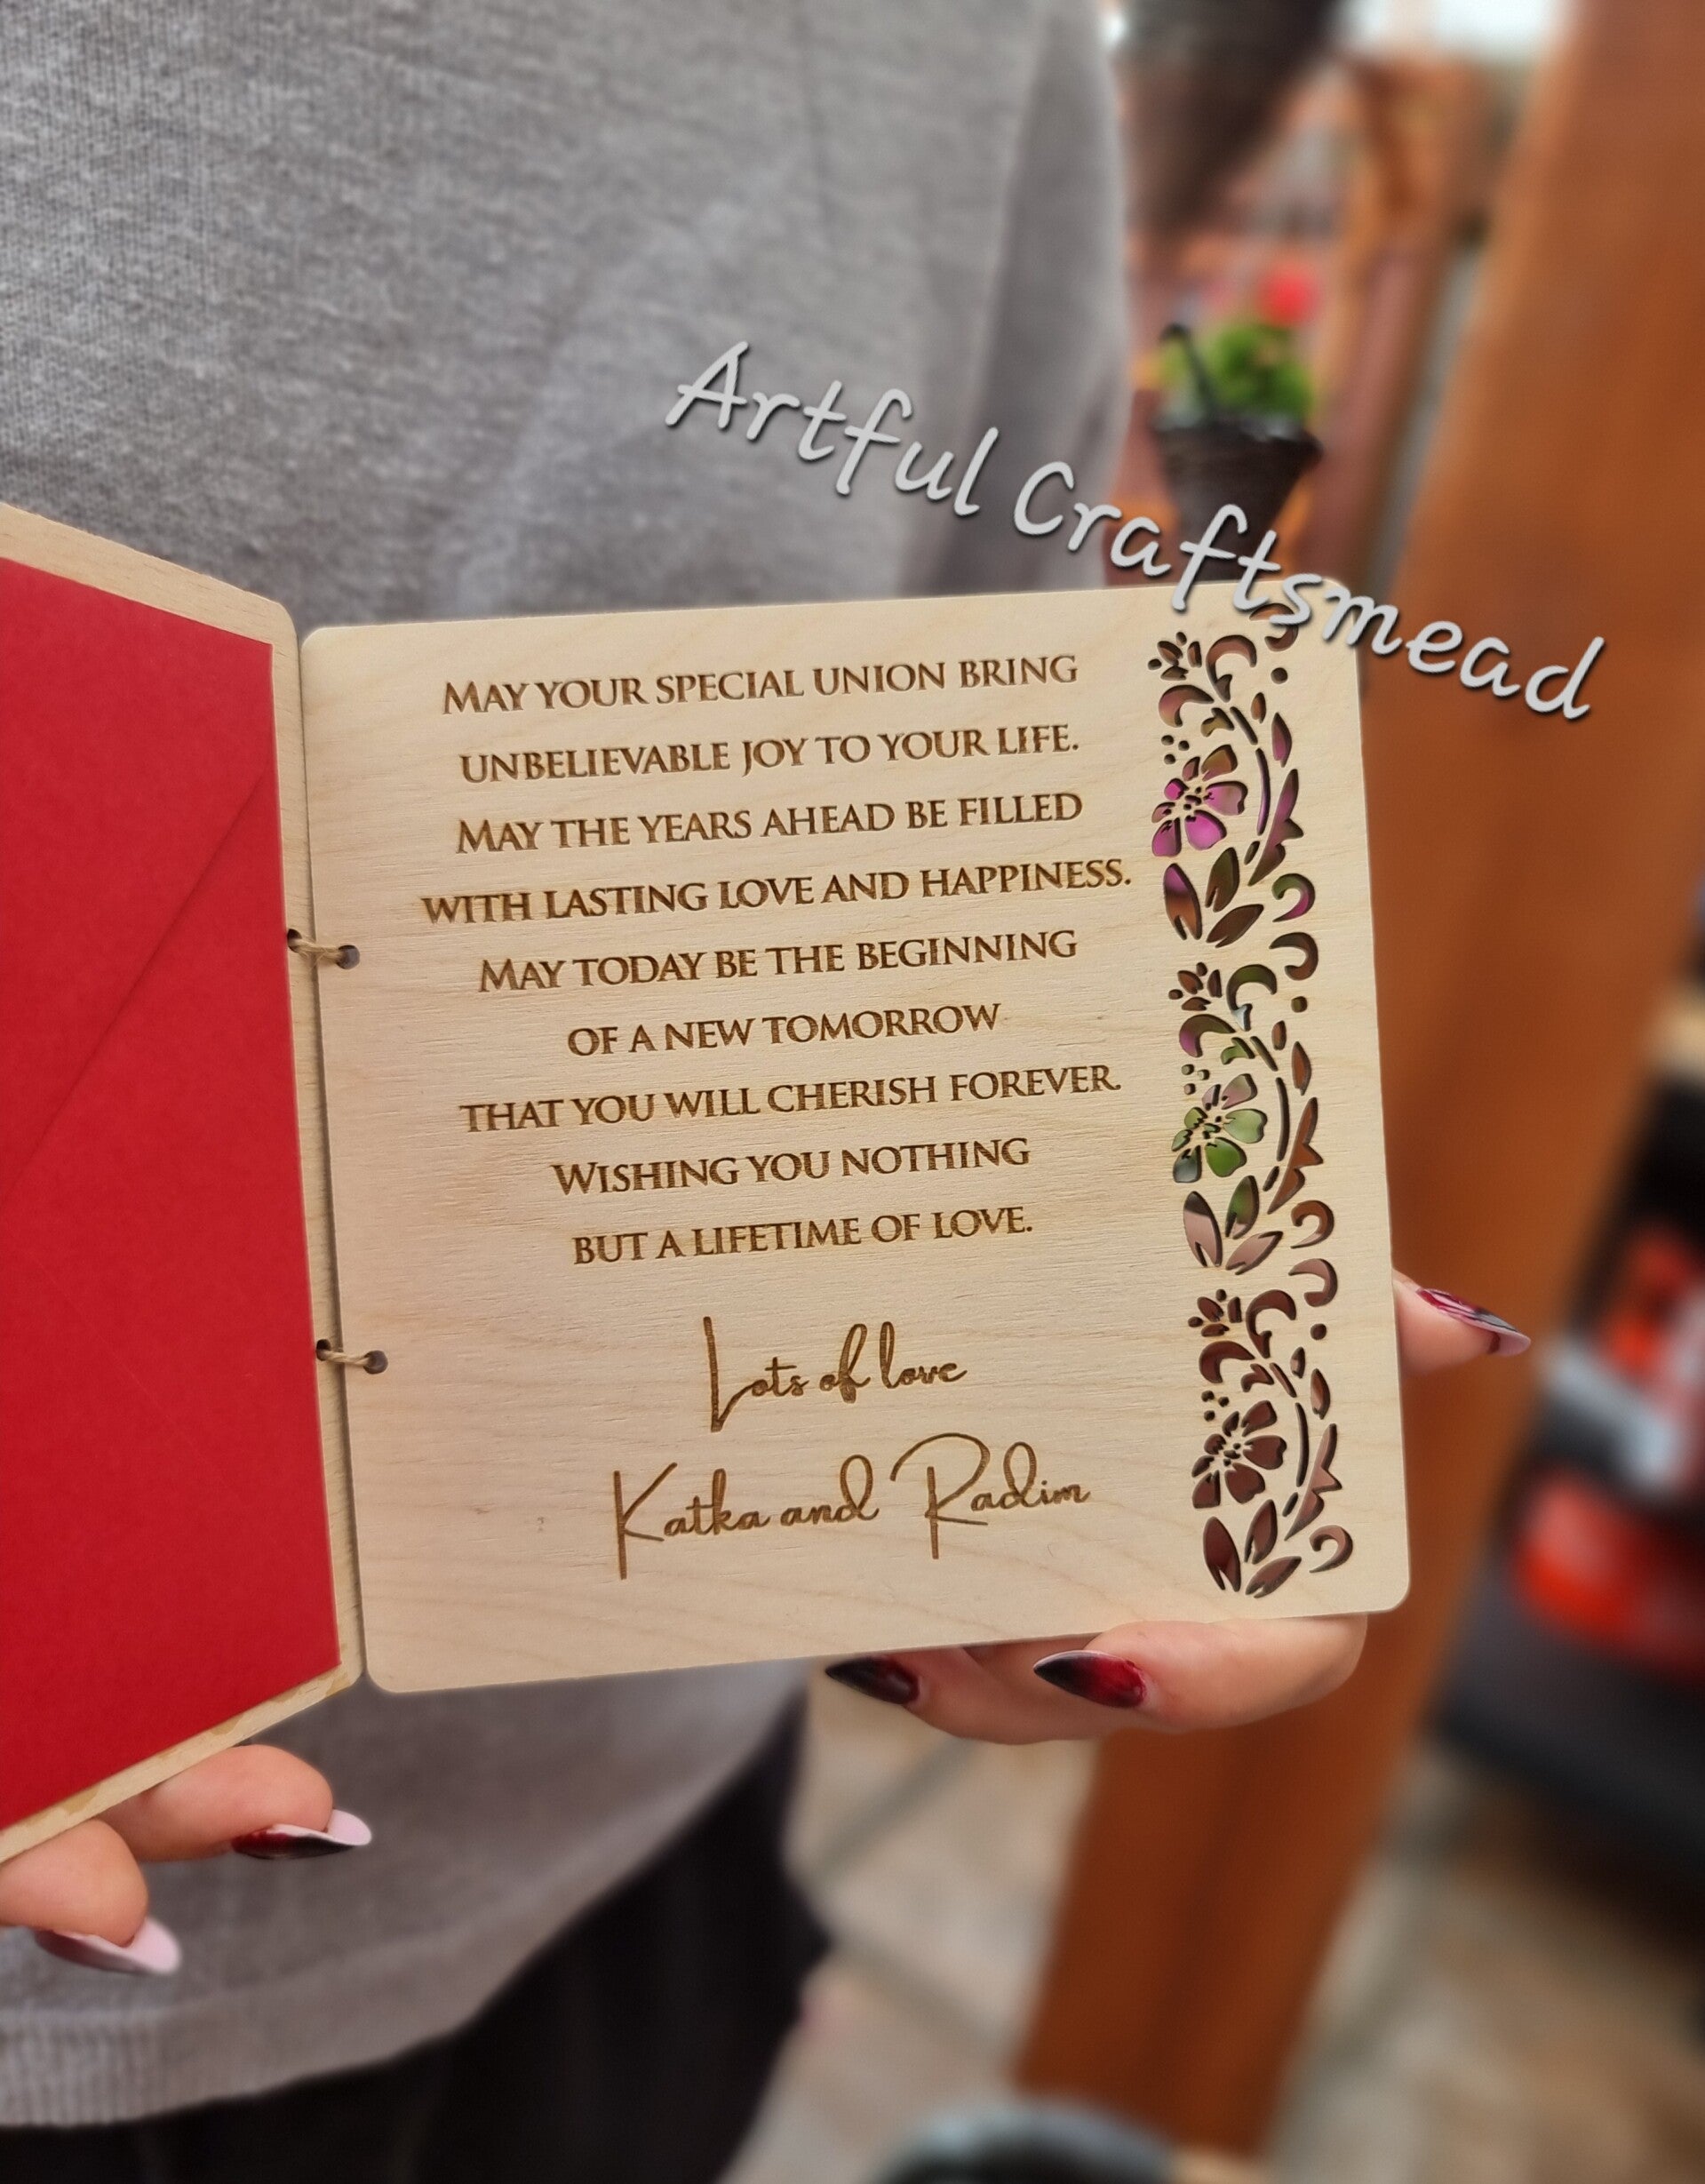 Artful Craftsmead
MAY YOUR SPECIAL UNION BRING
UNBELIEVABLE JOY TO YOUR LIFE.
MAY THE YEARS AHEAD BE FILLED
WITH LASTING LOVE AND HAPPINESS.
MAY TODAY BE THE BEGINNING
OF A NEW TOMORROW
THAT YOU WILL CHERISH FOREVER.
WISHING YOU NOTHING
BUT A LIFETIME OF LOVE.
Lots of love
Katka and Radim